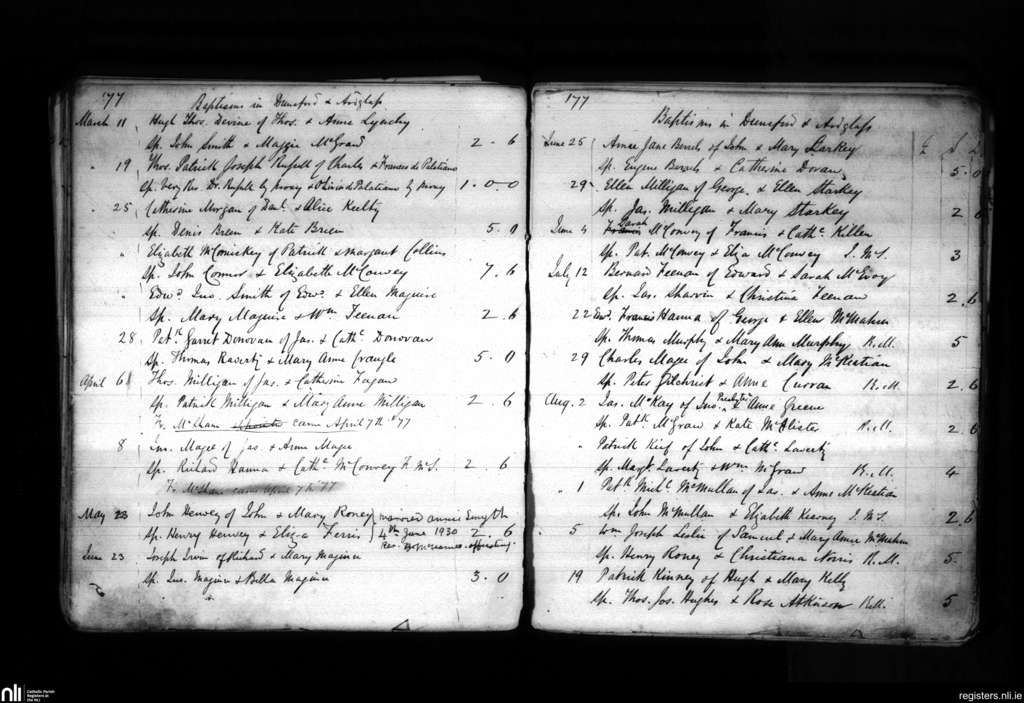 '77
Baptisms in Dunsford & Ardglass
March 11 Hugh Thos. Devine of Thos. & Anne Lynchy
Sp. John Smith & Maggie McGrad 2 - 6
" 19 Thos. Patrick Joseph Russell of Charles & Frances de
Sp. Very Rev. Dr. Russell by proxy & by proxy 1 - 0 - 0
" 25 Catherine Morgan of Danl. & Alice
Sp. Denis Breen & Kate Breen 5 . 0
" Elizabeth McComiskey of Patrick & Margaret Collins
Sp. John Connor & Elizabeth McConvey 7 . 6
" Edwd. Jno. Smith of Edwd. & Ellen Maguire
Sp. Mary Maguire & Wm Feenan 2 . 6
28 Patk. Garret Donovan of Jas. & Cathe. Donovan
Sp. Thomas & Mary Anne 5 . 0
April 6 Thos. Milligan of Jas. & Catherine Fagan
Sp. Patrick Milligan & Mary Anne Milligan 2 . 6
Fr. McShane came April 7th '77
8 Jno. Magee of Jas & Anne Magee
Sp. Richard Hanna & Cathe. McConvey F. McS. 2 . 6
Fr McShane came April 7th '77
May 23 John Henvey of John & Mary Roney married Annie Smyth
Sp. Henry Henvey & Eliza Ferris 4th June 1930 2 . 6
Rev. officiating.
June 23 Joseph Irvin of Richard & Mary Maginn
Sp. Jno. Maginn & Bella Maginn 3 . 0
177
Baptisms in Dunsford & Ardglass
£ S d
June 25 Annie Jane of John & Mary
Sp. Eugene & Catherine Doran 5 . 0
29 Ellen Milligan of George & Ellen Starkey
Sp. Jas. Milligan & Mary Starkey 2
Sarah
June 4 McConvey of Francis & Cathe. Killen
Sp. Pat. McConvey & Eliza McConvey J. McS. 3
July 12 Bernard Feenan of Edward & Sarah McEvoy
Sp. Jas. Sharvin & Christina Feenan 2 . 6
22 Francis Hanna of George & Ellen McMahon
Sp. Thomas Murphy & Mary Ann Murphy R. M. 5
29 Charles Magee of John & Mary McKeatian
Sp. Peter Gilchrist & Anne Curran R. M. 2 . 6
Aug. 2 Jas. McKay of Jno. Presbytn. & Anne Greene
Sp. Patk. McGraw & Kate McAlister R. M. 2 . 6
" Patrick Keif of John & Cathe. Laverty
Sp. Margt. Laverty & Wm McGraw R. M. 4
" 1 Patk Michl. McMullan of Jas. & Anne McKeatian
Sp. John McMullan & Elizabeth Kearney J. McS. 2 . 6
" 5 Wm Joseph Leslie of Samuel & Mary Anne McMahon
Sp. Henry Roney & Christiana Norris R. M. 5
19 Patrick Kinney of Hugh & Mary Kelly
Sp. Thos. Jos. Hughes & Rose Atkinson R.M. 5
nli
Catholic Parish
Registers at
the NLI
registers.nli.ie